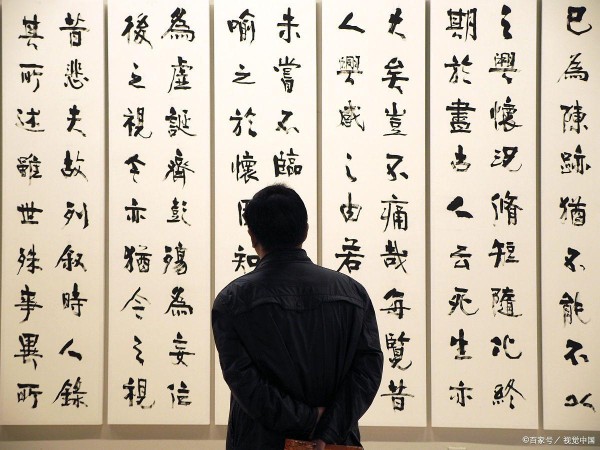 已為陳跡猶不能不以
之興懷況脩短隨化終
期於盡古人云死生亦
大矣豈不痛哉每覽昔
人興感之由若
未嘗不臨
喻之於懷固知
為虛誕齊彭殤為妄作
後之視今亦猶今之視
昔悲夫故列敘時人錄
其所述雖世殊事異所
©百家号／视觉中国